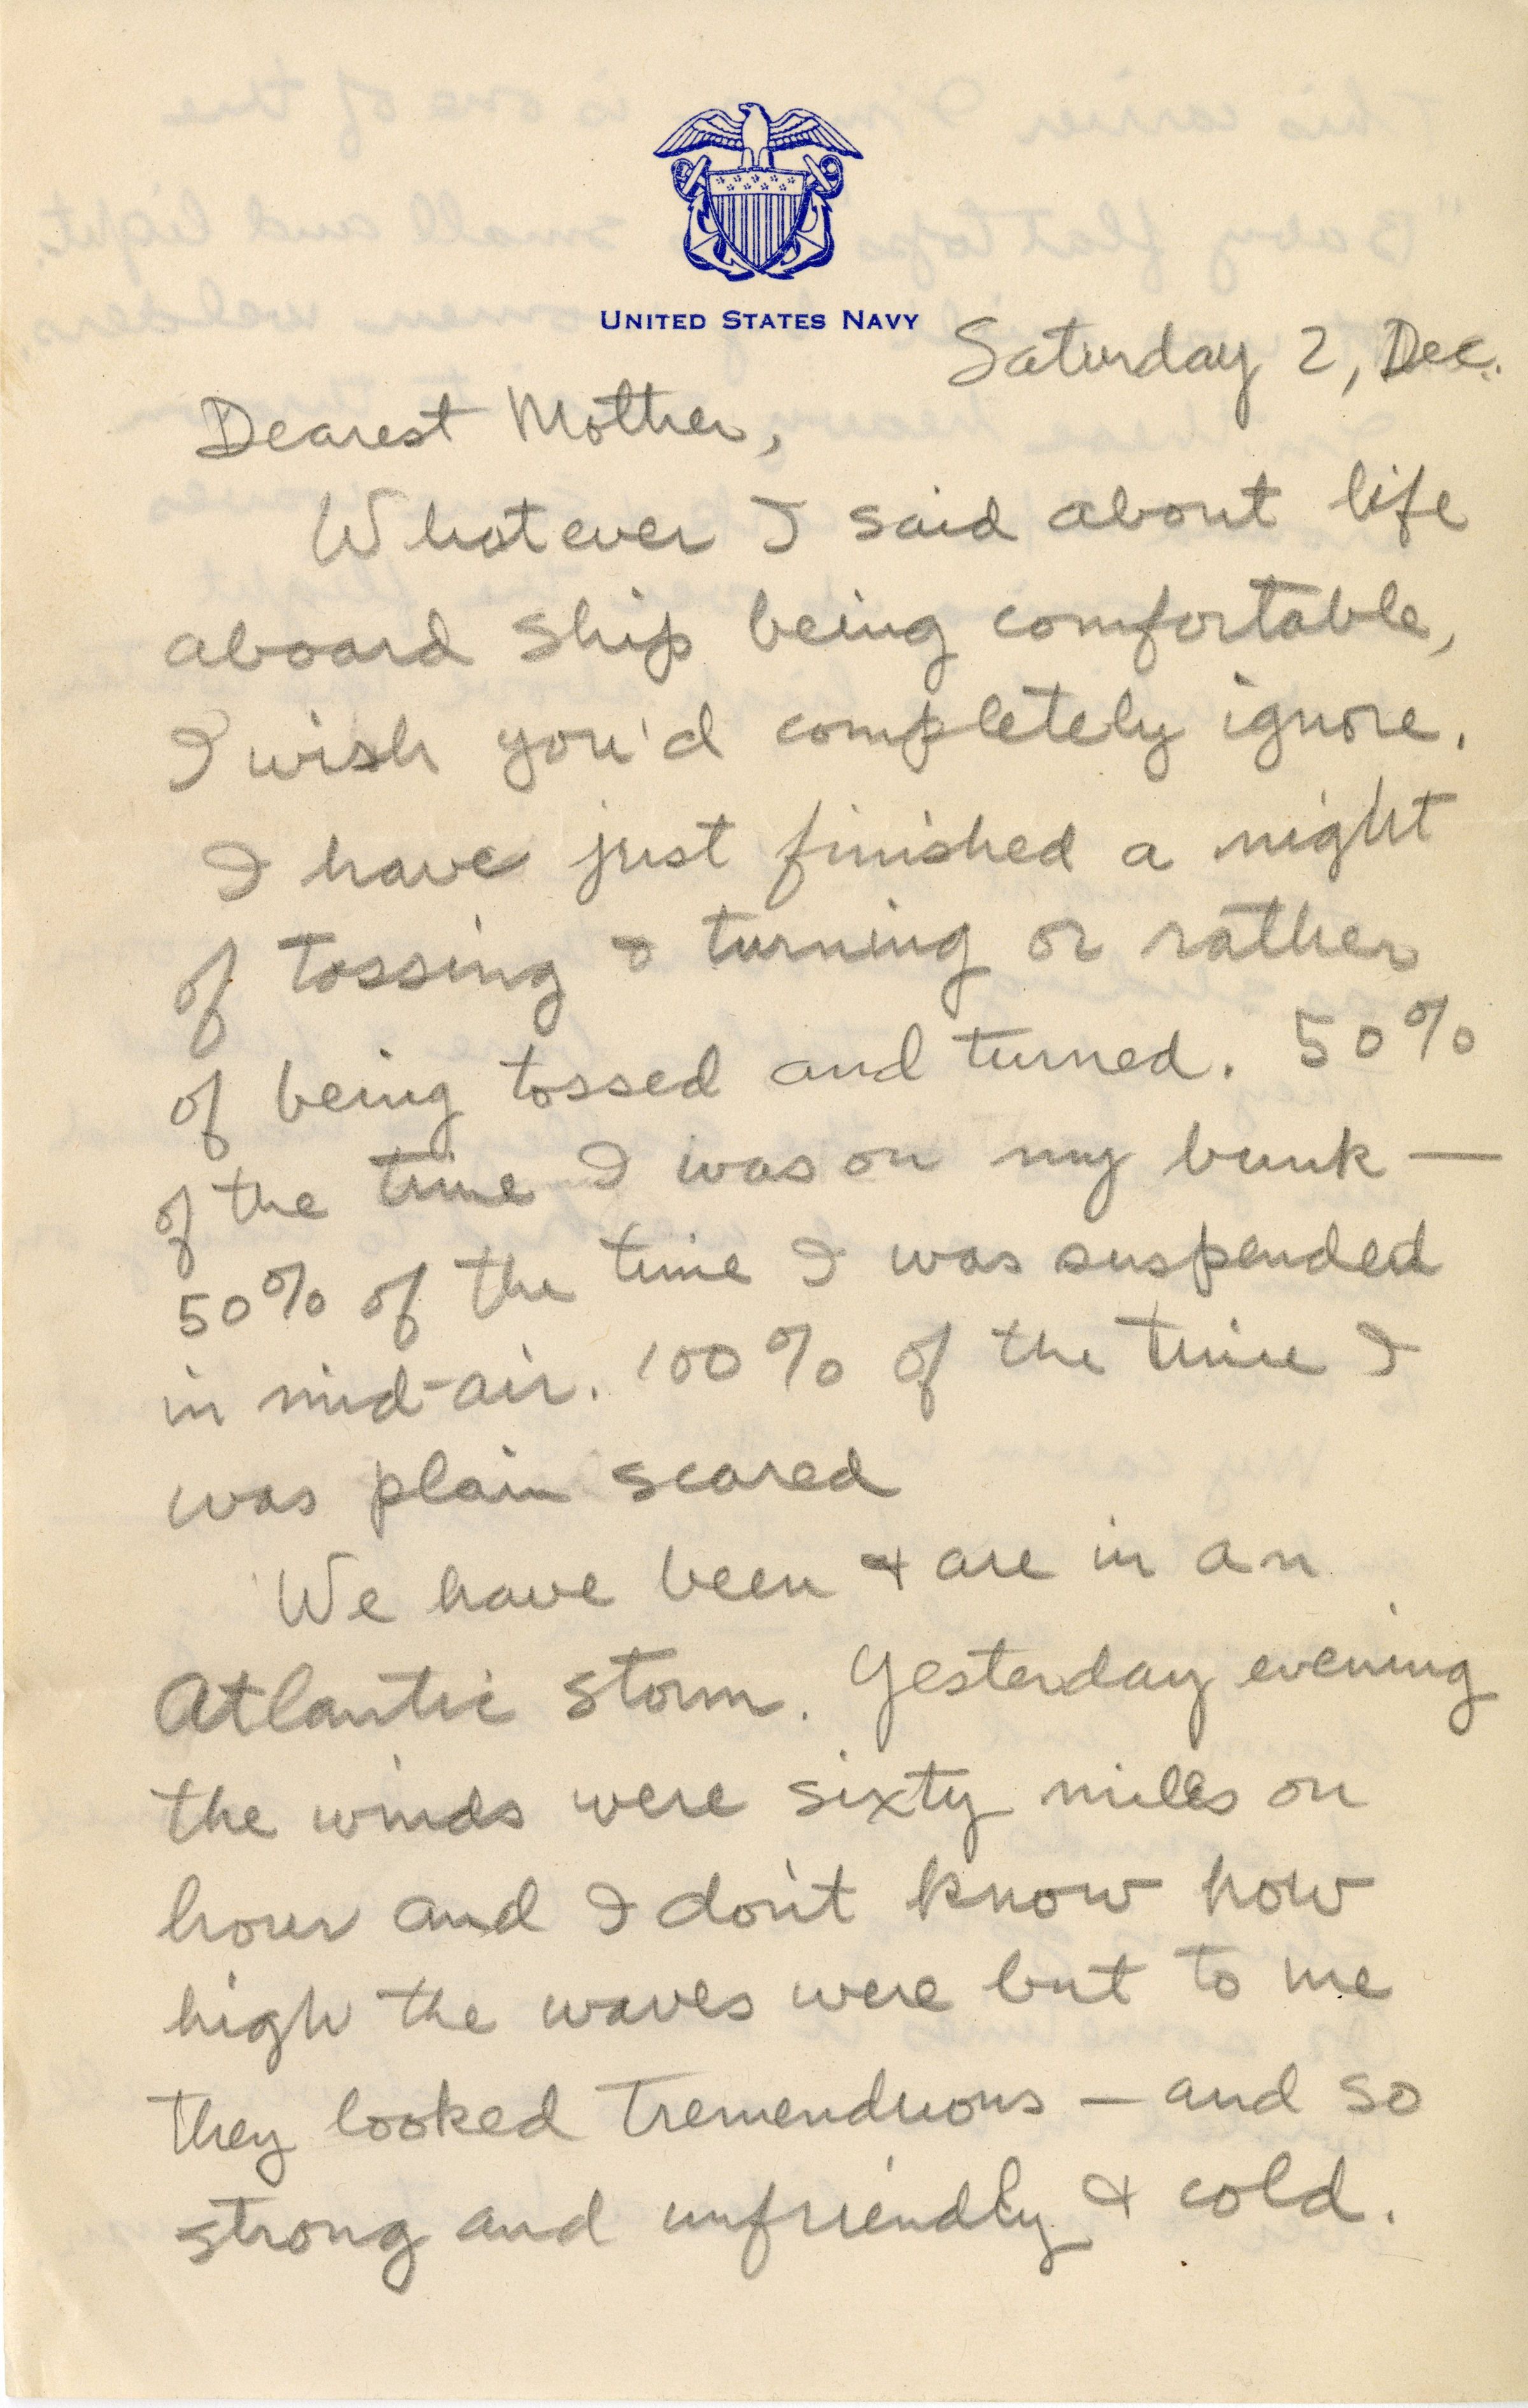 UNITED STATES NAVY
Saturday 2, Dec.
Dearest Mother,
Whatever I said about life
aboard ship being comfortable,
I wish you'd completely ignore.
I have just finished a night
of tossing & turning or rather
of being tossed and turned. 50%
of the time I was on my bunk —
50% of the time I was suspended
in mid-air. 100% of the time I
was plain scared
We have been & are in an
Atlantic storm. Yesterday evening
the winds were sixty miles an
hour and I don't know how
high the waves were but to me
they looked tremenduous — and so
strong and unfriendly & cold.